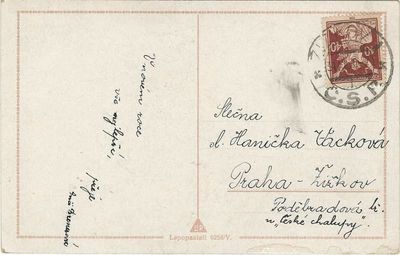 V novém roce
vše nejlepší,
přeje
Slečna
sl. Hanička Vacková
Praha-Žižkov
Poděbradová tř.
u „České chalupy".
40
Č.S.P.
Lepopastell 6256/V.